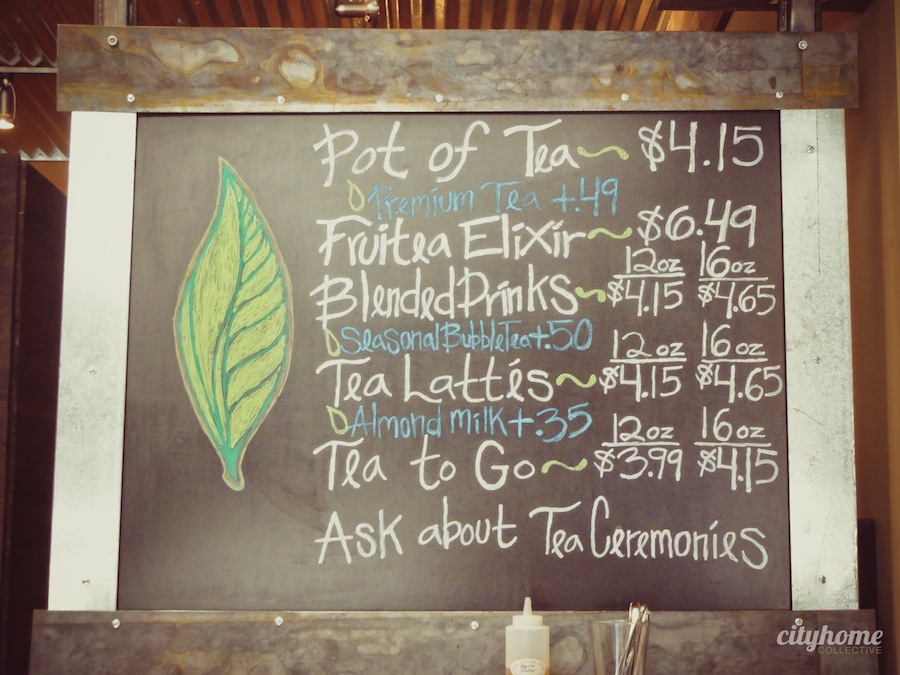 Pot of Tea ~ $4.15
Premium Tea +.49
Fruitea Elixir ~ $6.49
12oz 16oz
Blended Drinks ~ $4.15 $4.65
Seasonal Bubble Tea +.50
12oz 16oz
Tea Lattés ~ $4.15 $4.65
Almond milk +.35
12oz 16oz
Tea to Go ~ $3.99 $4.15
Ask about Tea Ceremonies
cityhome
COLLECTIVE